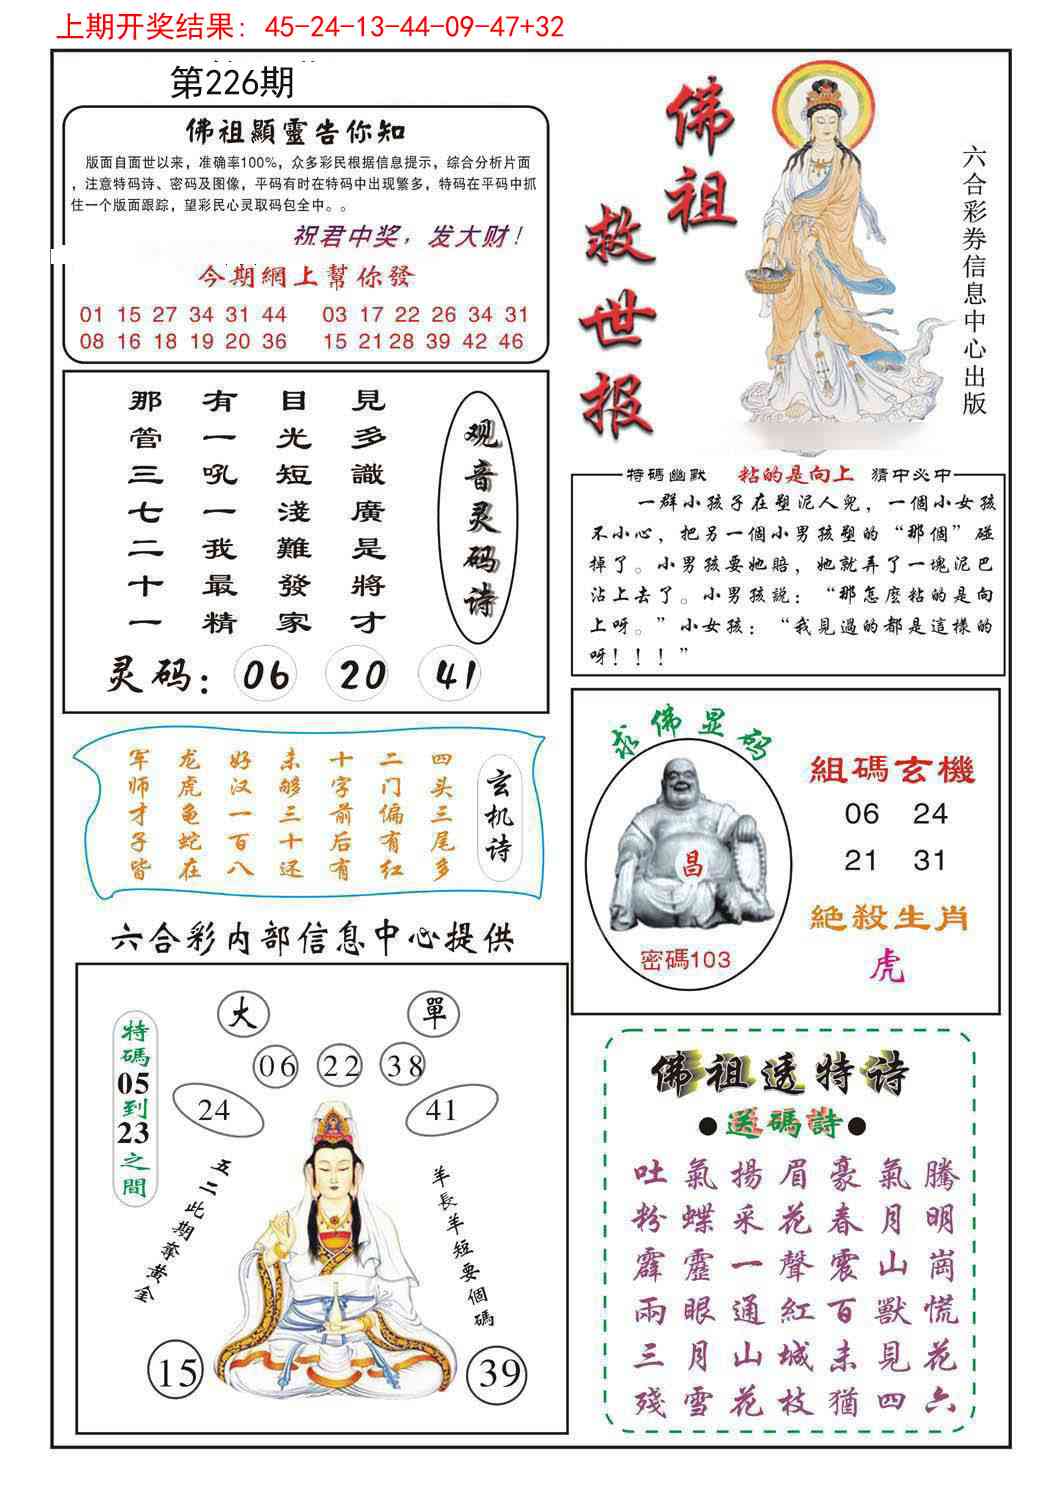 上期开奖结果：45-24-13-44-09-47+32
第226期
佛祖顯靈告你知
版面自面世以来，准确率100%，众多彩民根据信息提示，综合分析片面
，注意特码诗、密码及图像，平码有时在特码中出现繁多，特码在平码中抓
住一个版面跟踪，望彩民心灵取码包全中。。
祝君中奖，发大财！
今期網上幫你發
01 15 27 34 31 44 03 17 22 26 34 31
08 16 18 19 20 36 15 21 28 39 42 46
佛祖
救世报
六合彩券信息中心出版
观音灵码诗
見多識廣是將才
目光短淺難發家
有一吼一我最精
那管三七二十一
灵码： 06 20 41
特碼幽默 粘的是向上 猜中必中
一群小孩子在塑泥人兒，一個小女孩
不小心，把另一個小男孩塑的“那個”碰
掉了。小男孩要她賠，她就弄了一塊泥巴
沾上去了。小男孩説：“那怎麽粘的是向
上呀。”小女孩：“我見過的都是這樣的
呀！！！”
玄机诗
四头三尾多
二门偏有红
十字前后有
未够三十还
好汉一百八
龙虎龟蛇在
军师才子皆
求佛显码
昌
密碼103
組碼玄機
06 24
21 31
絕殺生肖
虎
六合彩内部信息中心提供
大 單
06 22 38
24 41
特碼05到23之間
五二此期奪黄金
羊長羊短要個碼
15 39
佛祖透特诗
●送碼詩●
吐氣揚眉豪氣騰
粉蝶采花春月明
霹靂一聲震山崗
兩眼通紅百獸慌
三月山城未見花
殘雪花枝猶四六